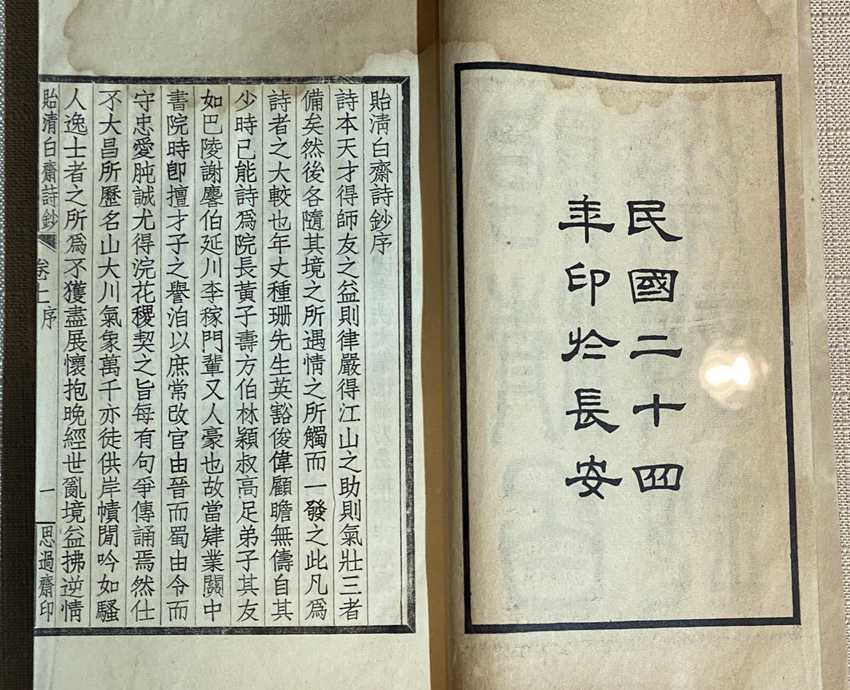 民國二十四
年印於長安
貽清白齋詩鈔序
詩本天才得師友之益則律嚴得江山之助則氣壯三者
備矣然後各隨其境之所遇情之所觸而一發之此凡爲
詩者之大較也年丈種珊先生英豁俊偉顧瞻無儔自其
少時已能詩爲院長黃子壽方伯林穎叔高足弟子其友
如巴陵謝麐伯延川李稼門輩又人豪也故當肄業關中
書院時卽擅才子之譽洎以庶常改官由晉而蜀由令而
守忠愛肫誠尤得浣花稷契之旨每有句爭傳誦焉然仕
不大昌所歷名山大川氣象萬千亦徒供岸幘閒吟如騷
人逸士者之所爲不獲盡展懷抱晚經世亂境益拂逆情
貽清白齋詩鈔 卷上 序 一 思過齋印